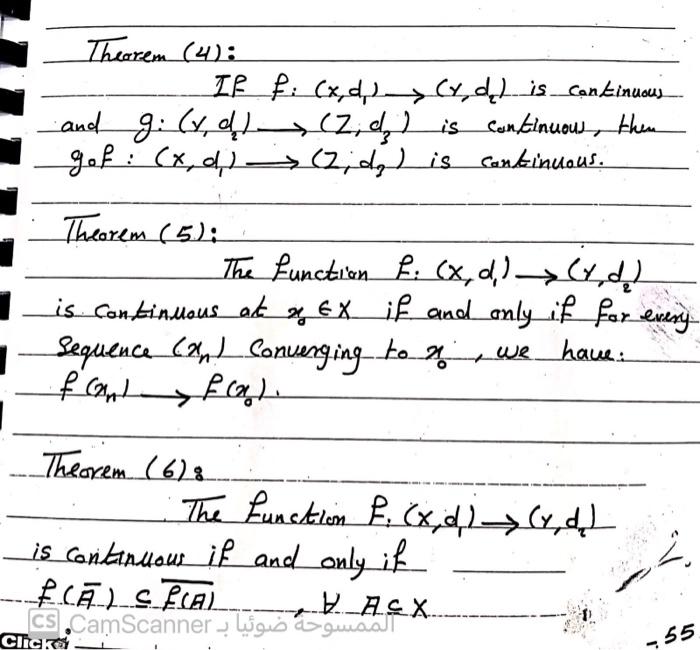 Theorem (4):
If f: (X,d₁) → (Y,d₂) is continuous
and g: (Y,d₂) → (Z,d₃) is continuous, then
gof : (X,d₁) → (Z,d₃) is continuous.
Theorem (5):
The function f: (X,d₁) → (Y,d₂)
is continuous at x₀ ∈ X if and only if for every
Sequence (xₙ) Converging to x₀ , we have:
f(xₙ) → f(x₀).
Theorem (6):
The function f: (X,d₁) → (Y,d₂)
is continuous if and only if
f(Ā) ⊆ \overline{f(A)} , ∀ A ⊆ X
CS CamScanner الممسوحة ضوئيا بـ
Click
- 55